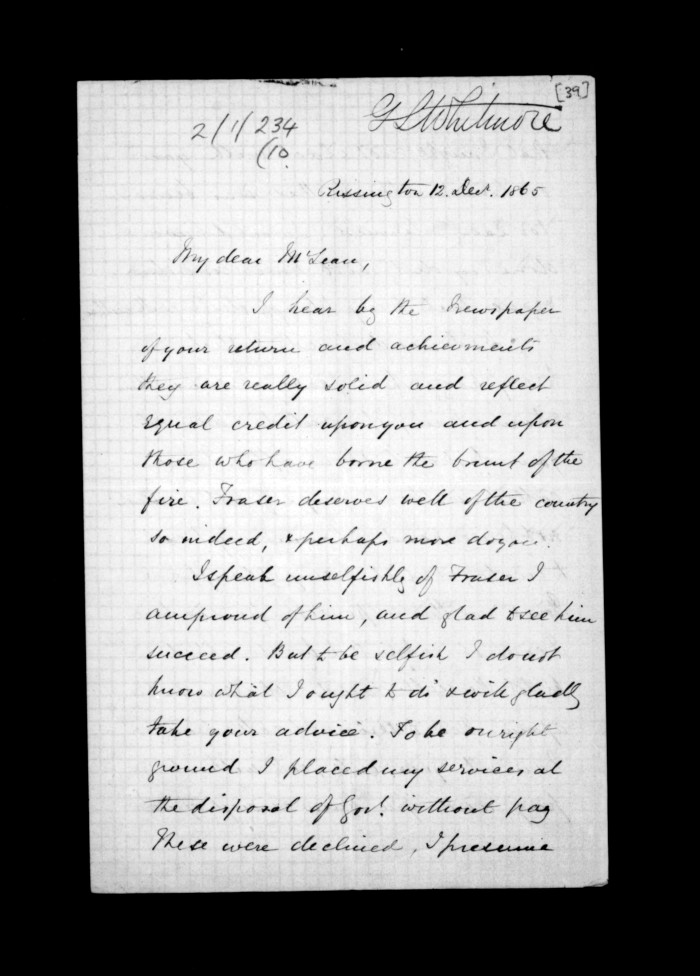 [39]
G S Whitmore
2/1/234
(10.
Rissington 12. Dec. 1865
My dear McLean,
I hear by the Newspaper
of your return and achievments
they are really solid and reflect
Equal credit upon you and upon
those who have borne the brunt of the
fire. Fraser deserves well of the country
so indeed, & perhaps more do you.
I speak unselfishly of Fraser I
am proud of him, and glad to see him
succeed. But to be selfish I do not
know what I ought to do & will gladly
take your advice. To be on right
ground I placed my services at
the disposal of Govt. without pay
These were declined, I presume